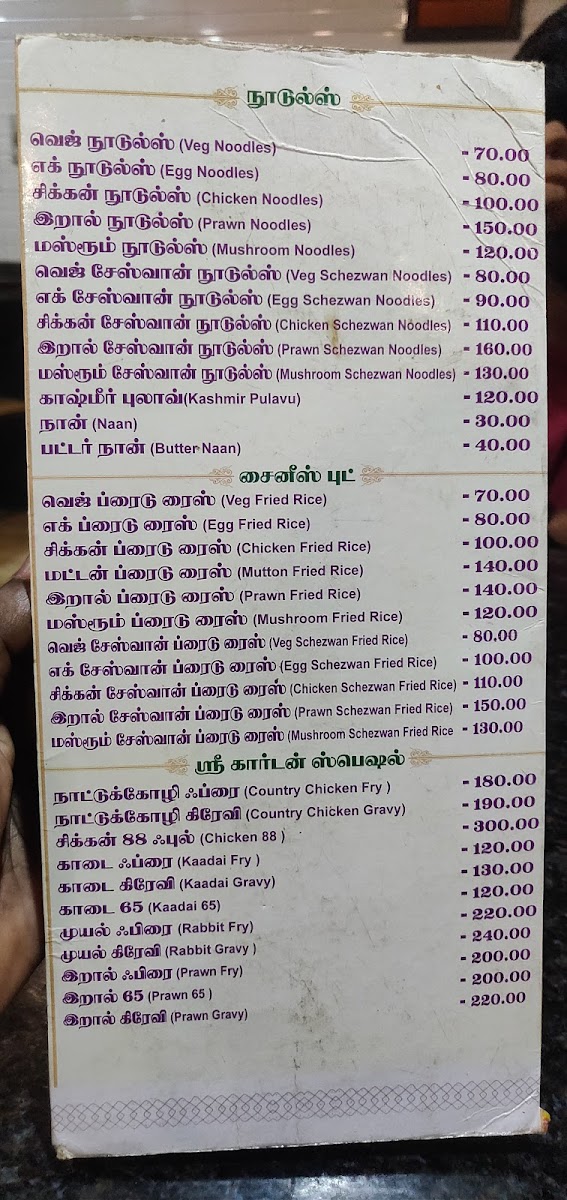 நூடுல்ஸ்
வெஜ் நூடுல்ஸ் (Veg Noodles) - 70.00
எக் நூடுல்ஸ் (Egg Noodles) - 80.00
சிக்கன் நூடுல்ஸ் (Chicken Noodles) - 100.00
இறால் நூடுல்ஸ் (Prawn Noodles) - 150.00
மஸ்ரூம் நூடுல்ஸ் (Mushroom Noodles) - 120.00
வெஜ் சேஸ்வான் நூடுல்ஸ் (Veg Schezwan Noodles) - 80.00
எக் சேஸ்வான் நூடுல்ஸ் (Egg Schezwan Noodles) - 90.00
சிக்கன் சேஸ்வான் நூடுல்ஸ் (Chicken Schezwan Noodles) - 110.00
இறால் சேஸ்வான் நூடுல்ஸ் (Prawn Schezwan Noodles) - 160.00
மஸ்ரூம் சேஸ்வான் நூடுல்ஸ் (Mushroom Schezwan Noodles) - 130.00
காஷ்மீர் புலாவ்(Kashmir Pulavu) - 120.00
நான் (Naan) - 30.00
பட்டர் நான் (Butter Naan) - 40.00
சைனீஸ் புட்
வெஜ் ப்ரைடு ரைஸ் (Veg Fried Rice) - 70.00
எக் ப்ரைடு ரைஸ் (Egg Fried Rice) - 80.00
சிக்கன் ப்ரைடு ரைஸ் (Chicken Fried Rice) - 100.00
மட்டன் ப்ரைடு ரைஸ் (Mutton Fried Rice) - 140.00
இறால் ப்ரைடு ரைஸ் (Prawn Fried Rice) - 140.00
மஸ்ரூம் ப்ரைடு ரைஸ் (Mushroom Fried Rice) - 120.00
வெஜ் சேஸ்வான் ப்ரைடு ரைஸ் (Veg Schezwan Fried Rice) - 80.00
எக் சேஸ்வான் ப்ரைடு ரைஸ் (Egg Schezwan Fried Rice) - 100.00
சிக்கன் சேஸ்வான் ப்ரைடு ரைஸ் (Chicken Schezwan Fried Rice) - 110.00
இறால் சேஸ்வான் ப்ரைடு ரைஸ் (Prawn Schezwan Fried Rice) - 150.00
மஸ்ரூம் சேஸ்வான் ப்ரைடு ரைஸ் (Mushroom Schezwan Fried Rice - 130.00
ஸ்ரீ கார்டன் ஸ்பெஷல்
நாட்டுக்கோழி ஃப்ரை (Country Chicken Fry ) - 180.00
நாட்டுக்கோழி கிரேவி (Country Chicken Gravy) - 190.00
சிக்கன் 88 ஃபுல் (Chicken 88 ) - 300.00
காடை ஃப்ரை (Kaadai Fry ) - 120.00
காடை கிரேவி (Kaadai Gravy) - 130.00
காடை 65 (Kaadai 65) - 120.00
முயல் ஃபிரை (Rabbit Fry) - 220.00
முயல் கிரேவி (Rabbit Gravy ) - 240.00
இறால் ஃபிரை (Prawn Fry) - 200.00
இறால் 65 (Prawn 65 ) - 200.00
இறால் கிரேவி (Prawn Gravy) - 220.00